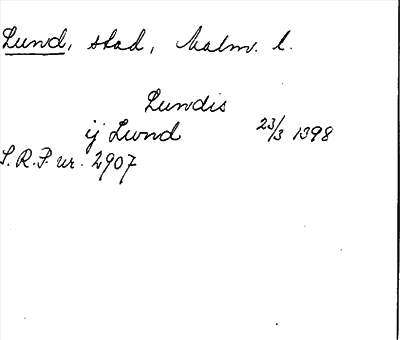 Lund, stad, Malm. l.
Lundis
ij Lund 23/3 1398
S.R.P. nr. 2907